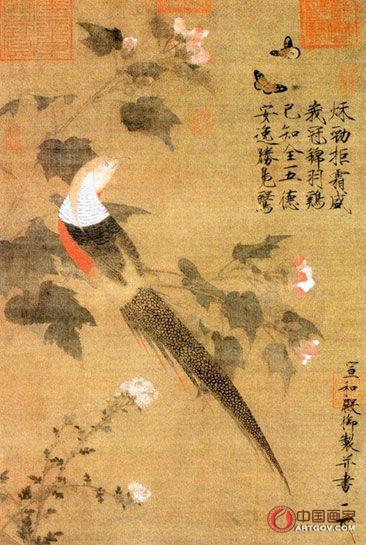 秋勁拒霜盛
峩冠錦羽鷄
已知全五德
安逸勝鳧鷖
宣和殿御製并書
中国画家
ARTGOV.COM